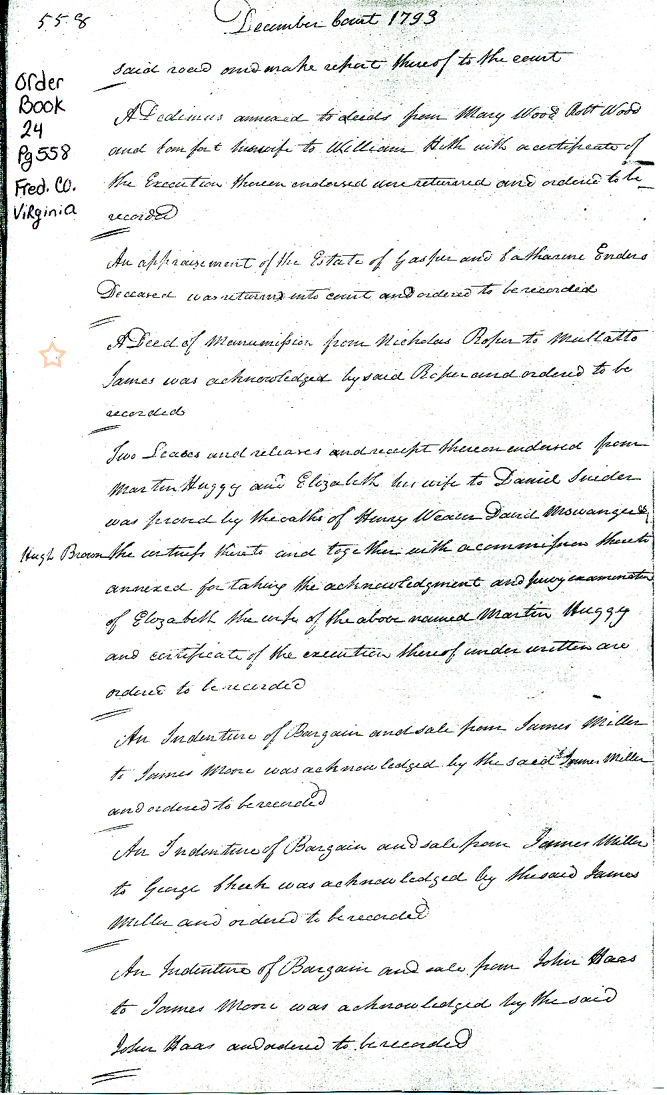 558
December Court 1793
Order
Book
24
Pg 558
Fred. Co.
Virginia
said road and make report thereof to the court
A Dedimus annexed to deeds from Mary Wood Robt Wood
and Comfort his wife to William Hith with a certificate of
the Execution thereon endorsed were returned and ordered to be
recorded
An appraisement of the Estate of Gasper and Catharine Enders
Deceased was returned into court and ordered to be recorded
A Deed of Manumission from Nicholas Roper to Mullatto
James was acknowledged by said Roper and ordered to be
recorded
Two Leases and releases and receipt thereon endorsed from
Martin Huggy and Elizabeth his wife to Daniel Snider
was proved by the oaths of Henry Weaver David
Hugh Brown the witness thereto and together with a commission thereto
annexed for taking the acknowledgment and privy examination
of Elizabeth the wife of the above named Martin Huggy
and certificate of the execution thereof under written are
ordered to be recorded
An Indenture of Bargain and sale from James Miller
to James Moore was acknowledged by the said James Miller
and ordered to be recorded
An Indenture of Bargain and sale from James Miller
to George Cheek was acknowledged by the said James
Miller and ordered to be recorded
An Indenture of Bargain and sale from John Haas
to James Moore was acknowledged by the said
John Haas and ordered to be recorded